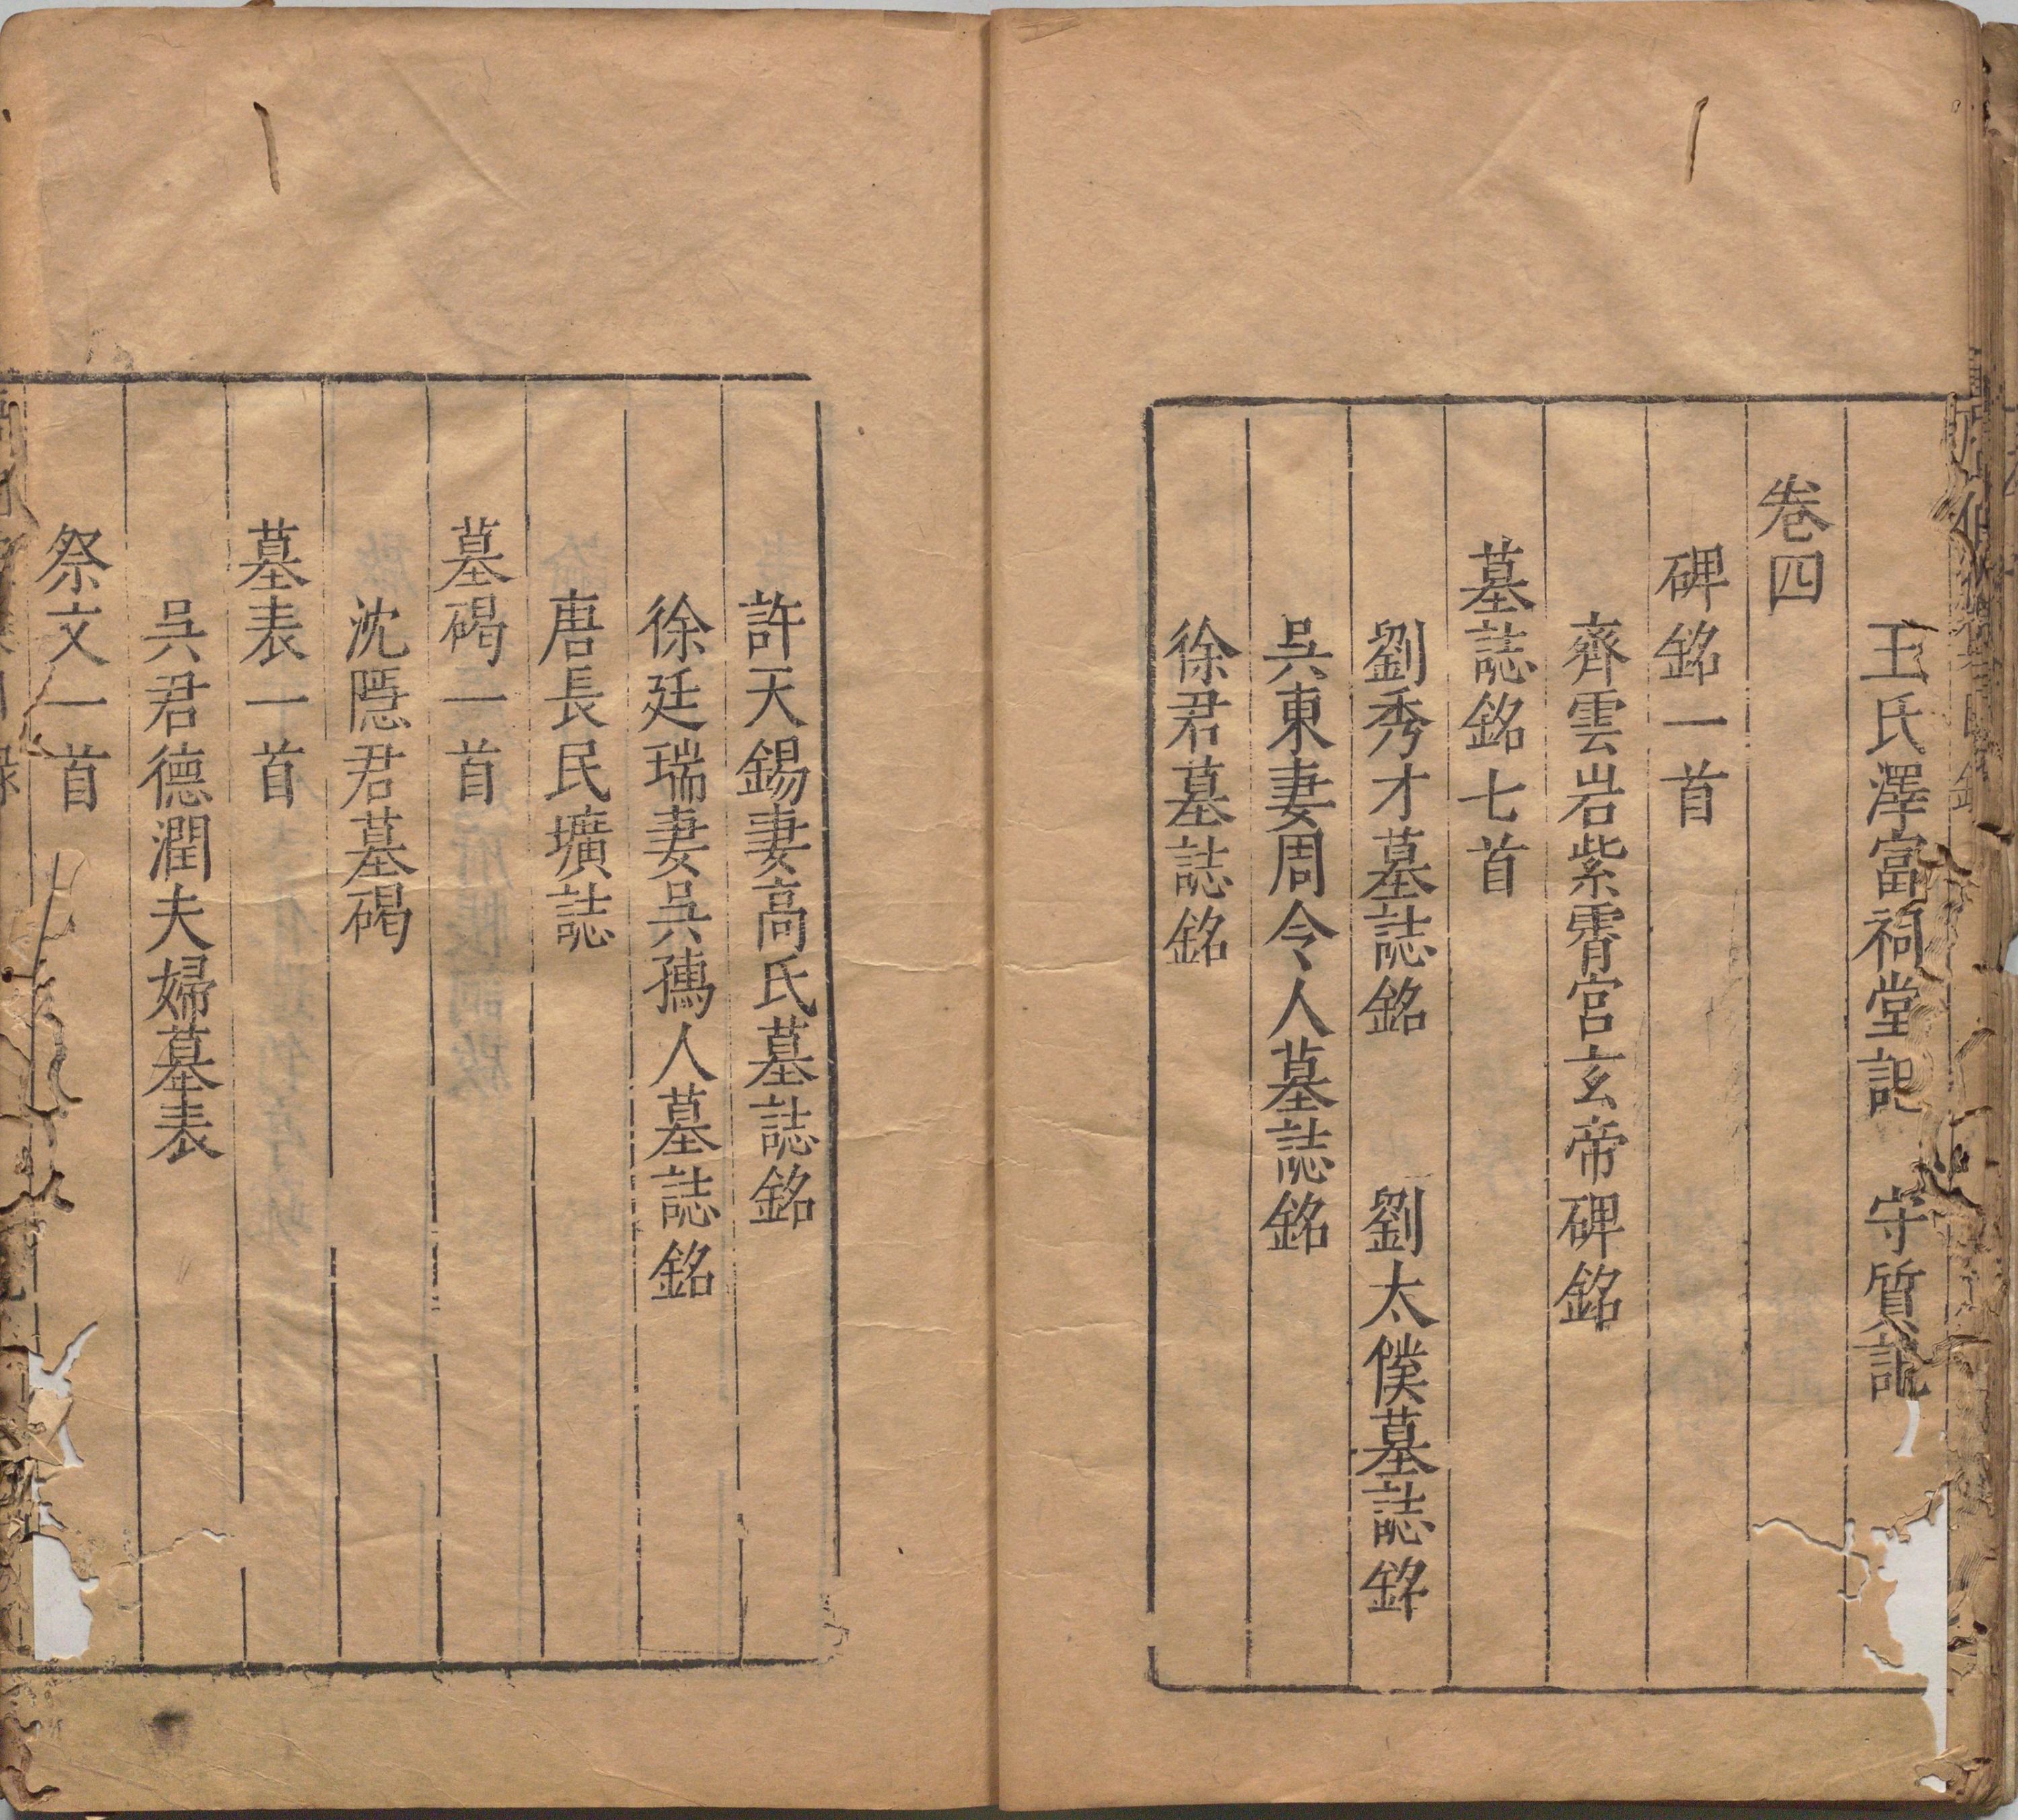 王氏澤富祠堂記　守質記
卷四
碑銘一首
齊雲岩紫霄宮玄帝碑銘
墓誌銘七首
劉秀才墓誌銘　劉太僕墓誌銘
吳東妻周令人墓誌銘
徐君墓誌銘
許天錫妻高氏墓誌銘
徐廷瑞妻吳孺人墓誌銘
唐長民壙誌
墓碣一首
沈隱君墓碣
墓表一首
吳君德潤夫婦墓表
祭文一首